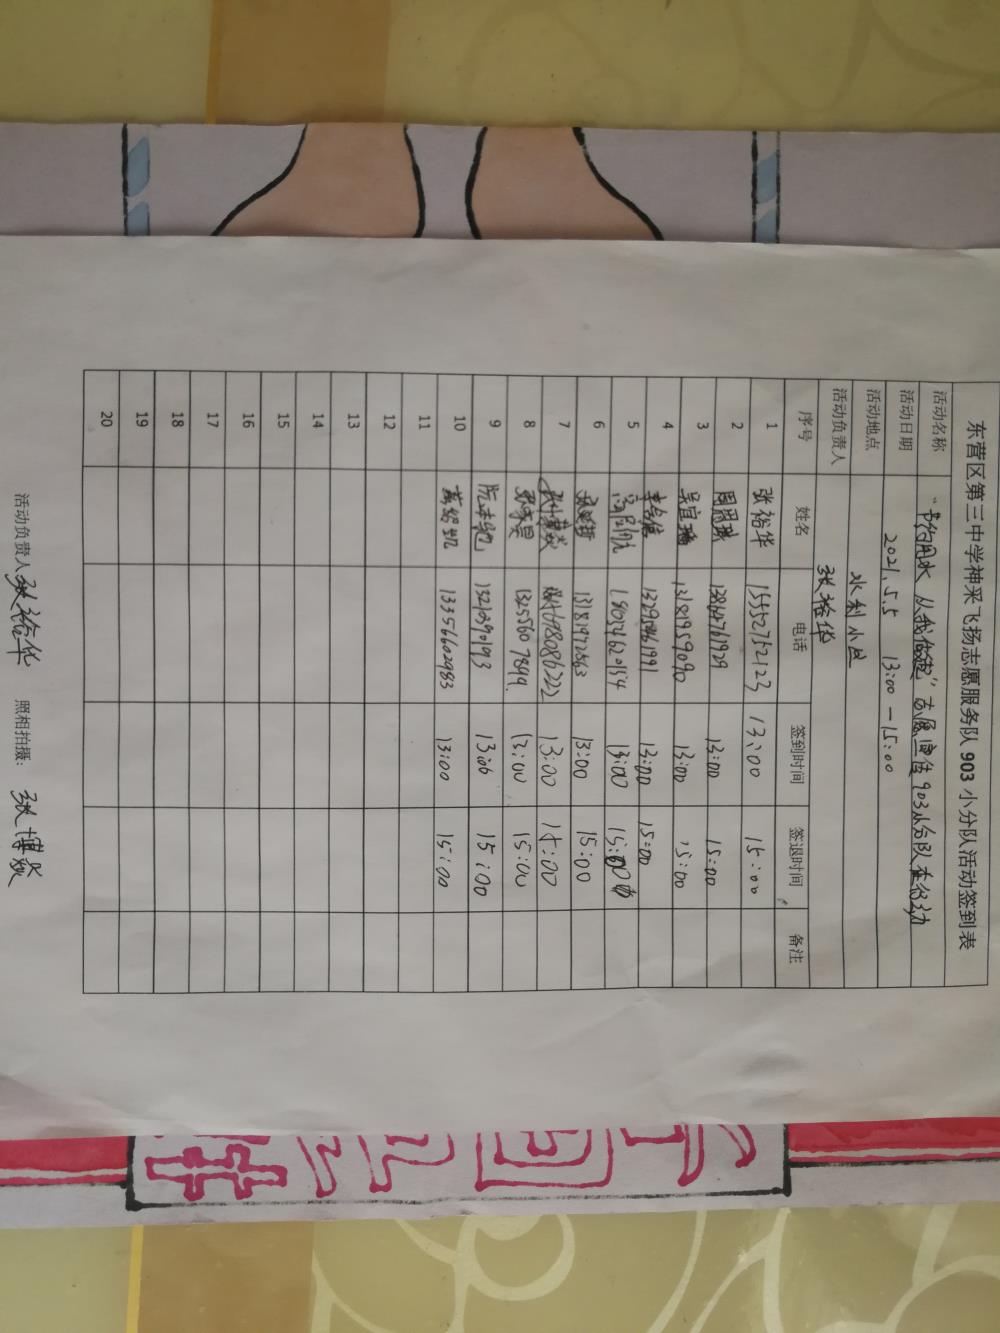 东营区第三中学神采飞扬志愿服务队 903 小分队活动签到表
活动名称 "节约用水 从我做起" 志愿宣传 903小分队在行动
活动日期 2021.5.5 13:00—15:00
活动地点 水利小区
活动负责人 张裕华
序号 姓名 电话 签到时间 签退时间 备注
1 张裕华 15552752123 13:00 15:00
2 13:00 15:00
3 吴宜璠 13181959090 13:00 15:00
4 13295461991 13:00 15:00
5 18054620154 13:00 15:00
6 13181972863 13:00 15:00
7 13:00 15:00
8 13255607899 13:00 15:00
9 13210390193 13:00 15:00
10 13356602983 13:00 15:00
11
12
13
14
15
16
17
18
19
20
活动负责人 张裕华 照相拍摄: 张博焱